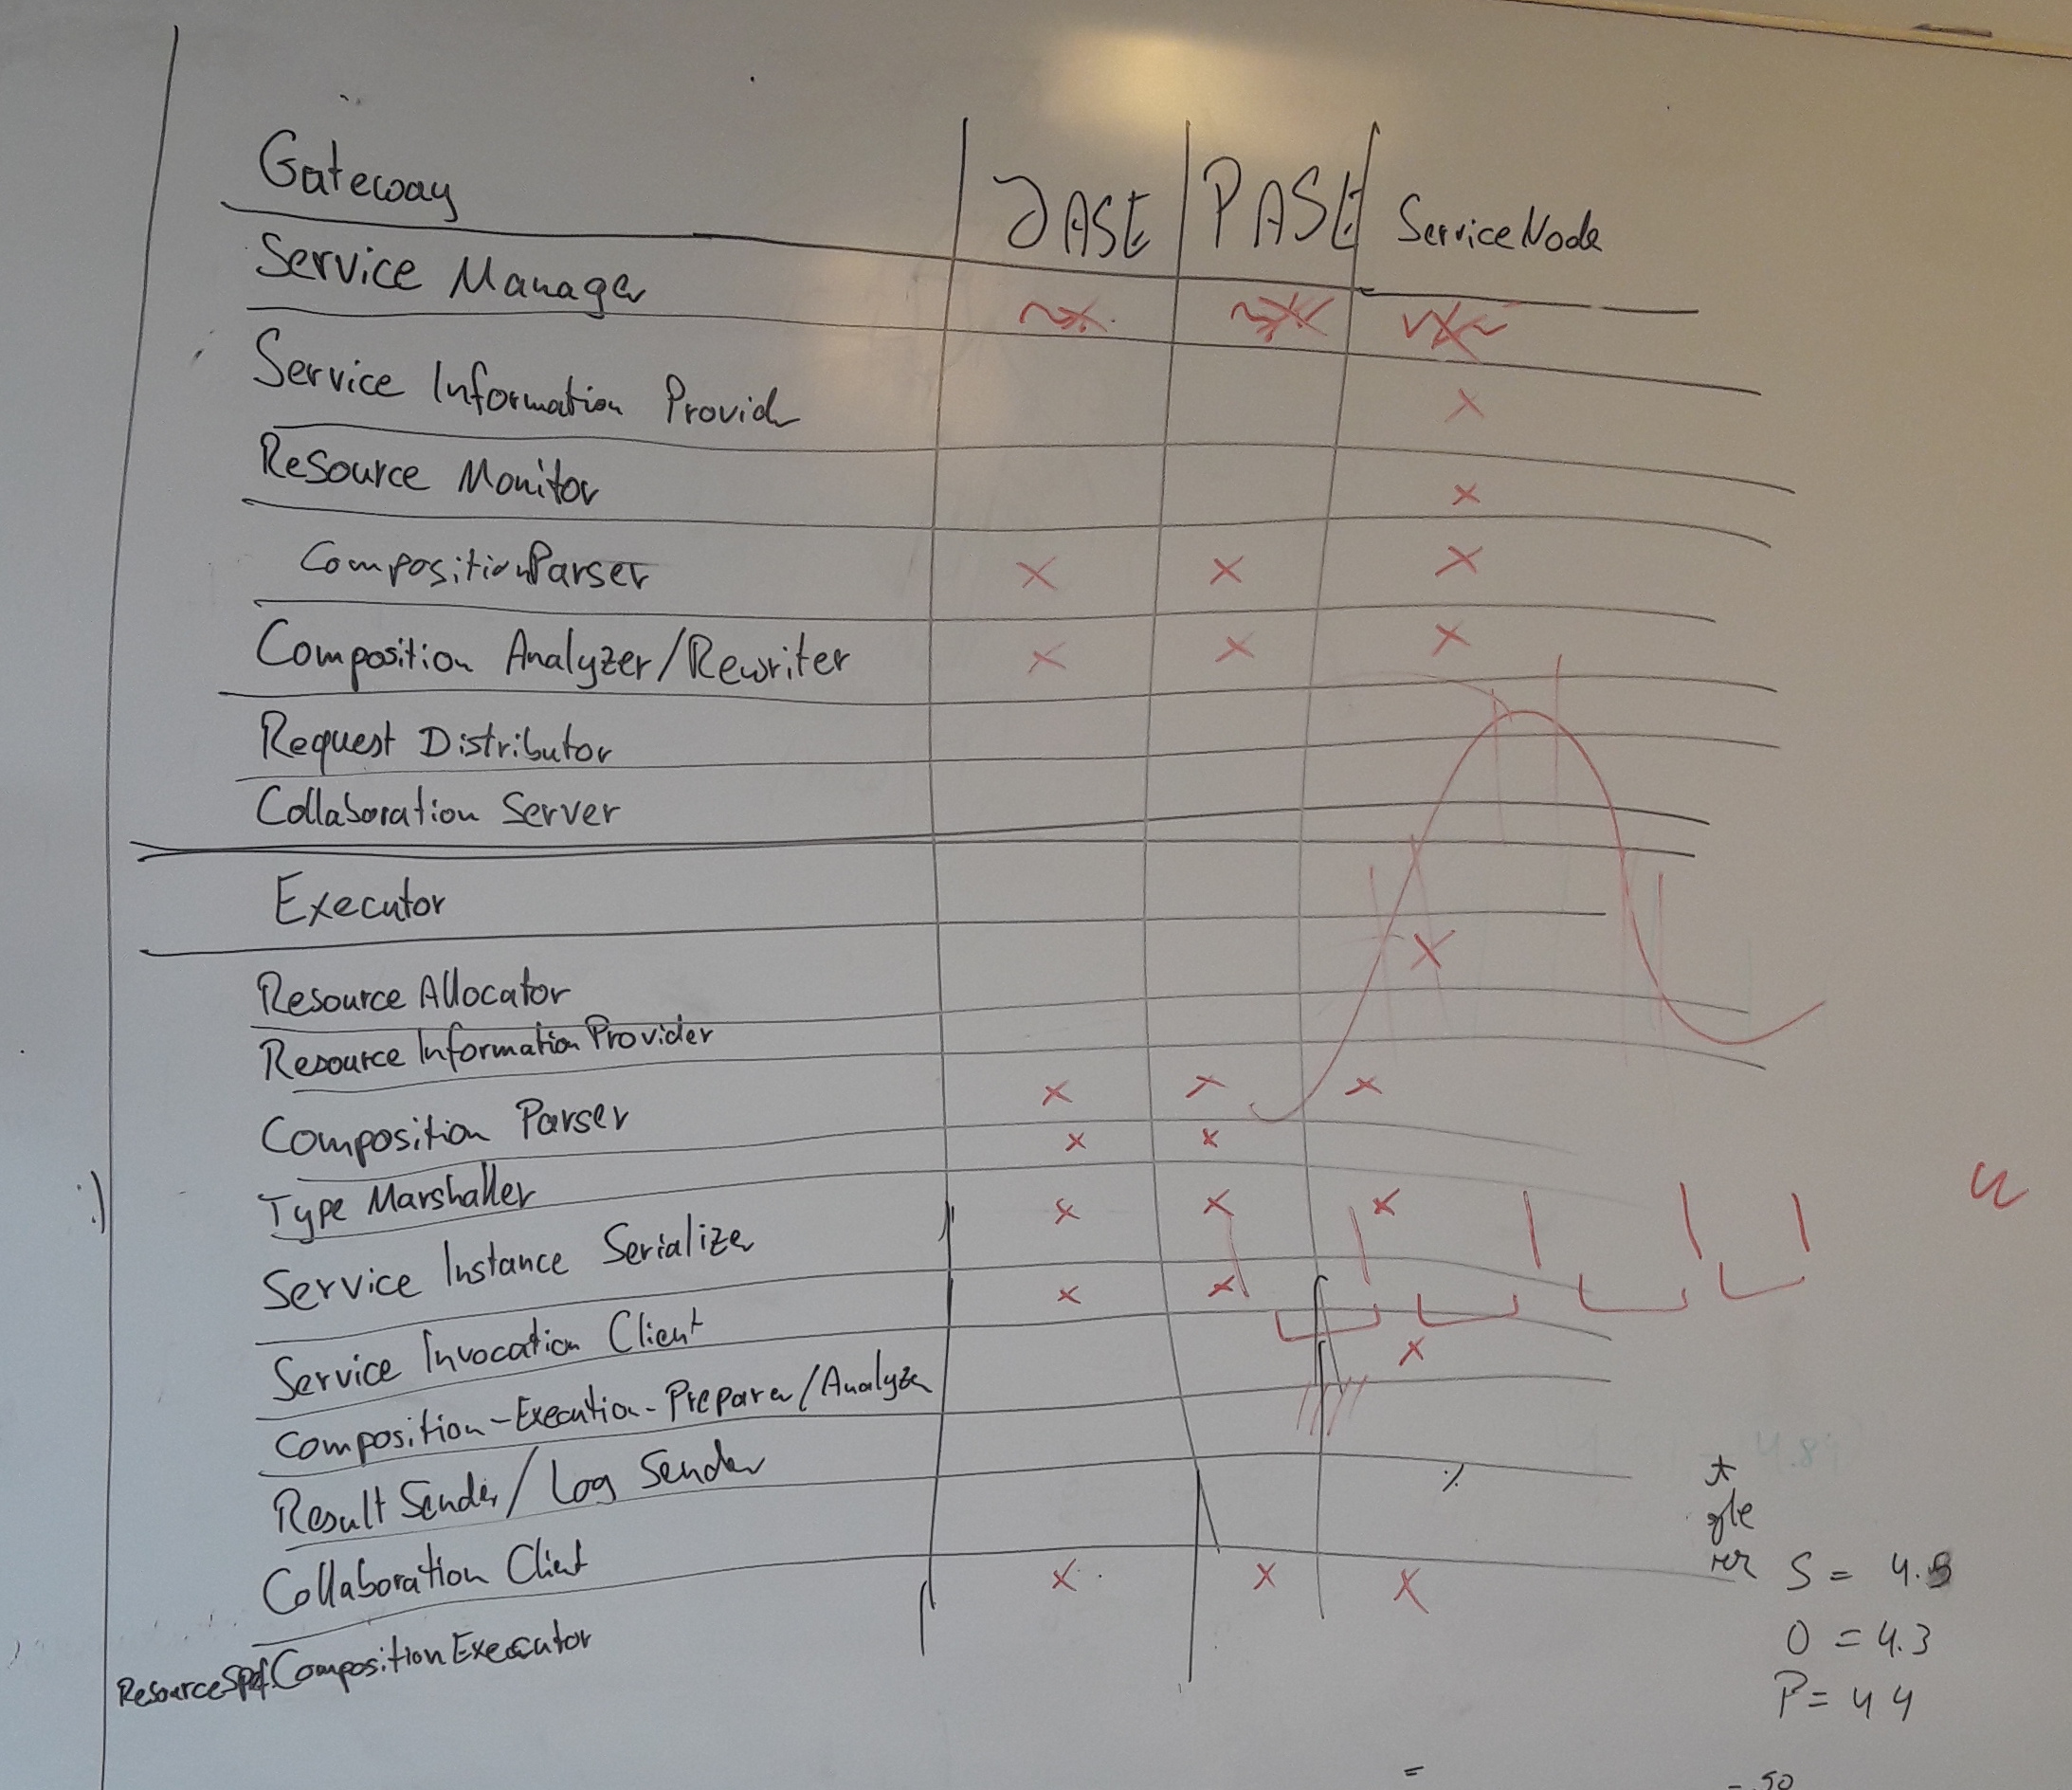 Gateway JASE PASE ServiceNode
Service Manager
Service Information Provider x
Resource Monitor x
CompositionParser x x x
Composition Analyzer/Rewriter x x x
Request Distributor
Collaboration Server
Executor
x
Resource Allocator
Resource Information Provider
x x x
Composition Parser
x x
Type Marshaller
x x x
Service Instance Serializer
x x
Service Invocation Client
x
Composition-Execution-Preparer/Analyzer
Result Sender/Log Sender
Collaboration Client
x x x
ResourceSpef.CompositionExecutor
:)
S = 4.8
O = 4.3
P = 4 4
=
- 50